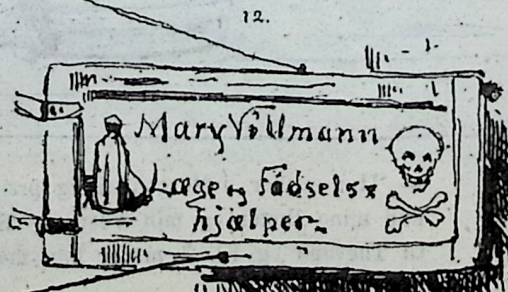 12.
Mary Villmann
Læge og Födsels=
hjælper.